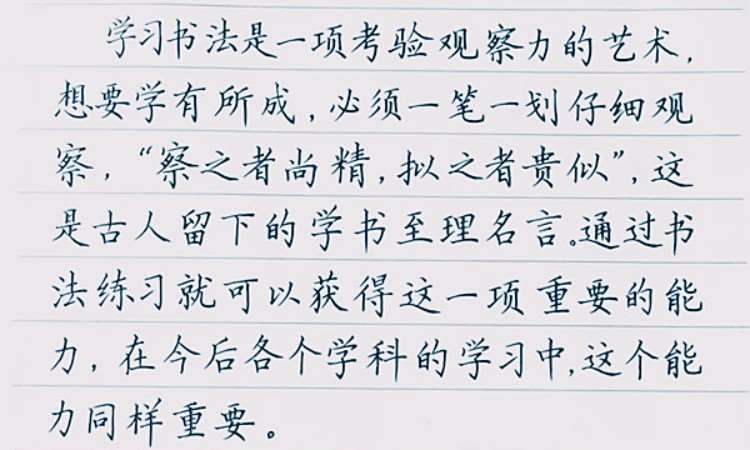 学习书法是一项考验观察力的艺术,
想要学有所成,必须一笔一划仔细观
察,“察之者尚精,拟之者贵似”,这
是古人留下的学书至理名言。通过书
法练习就可以获得这一项重要的能
力,在今后各个学科的学习中,这个能
力同样重要。